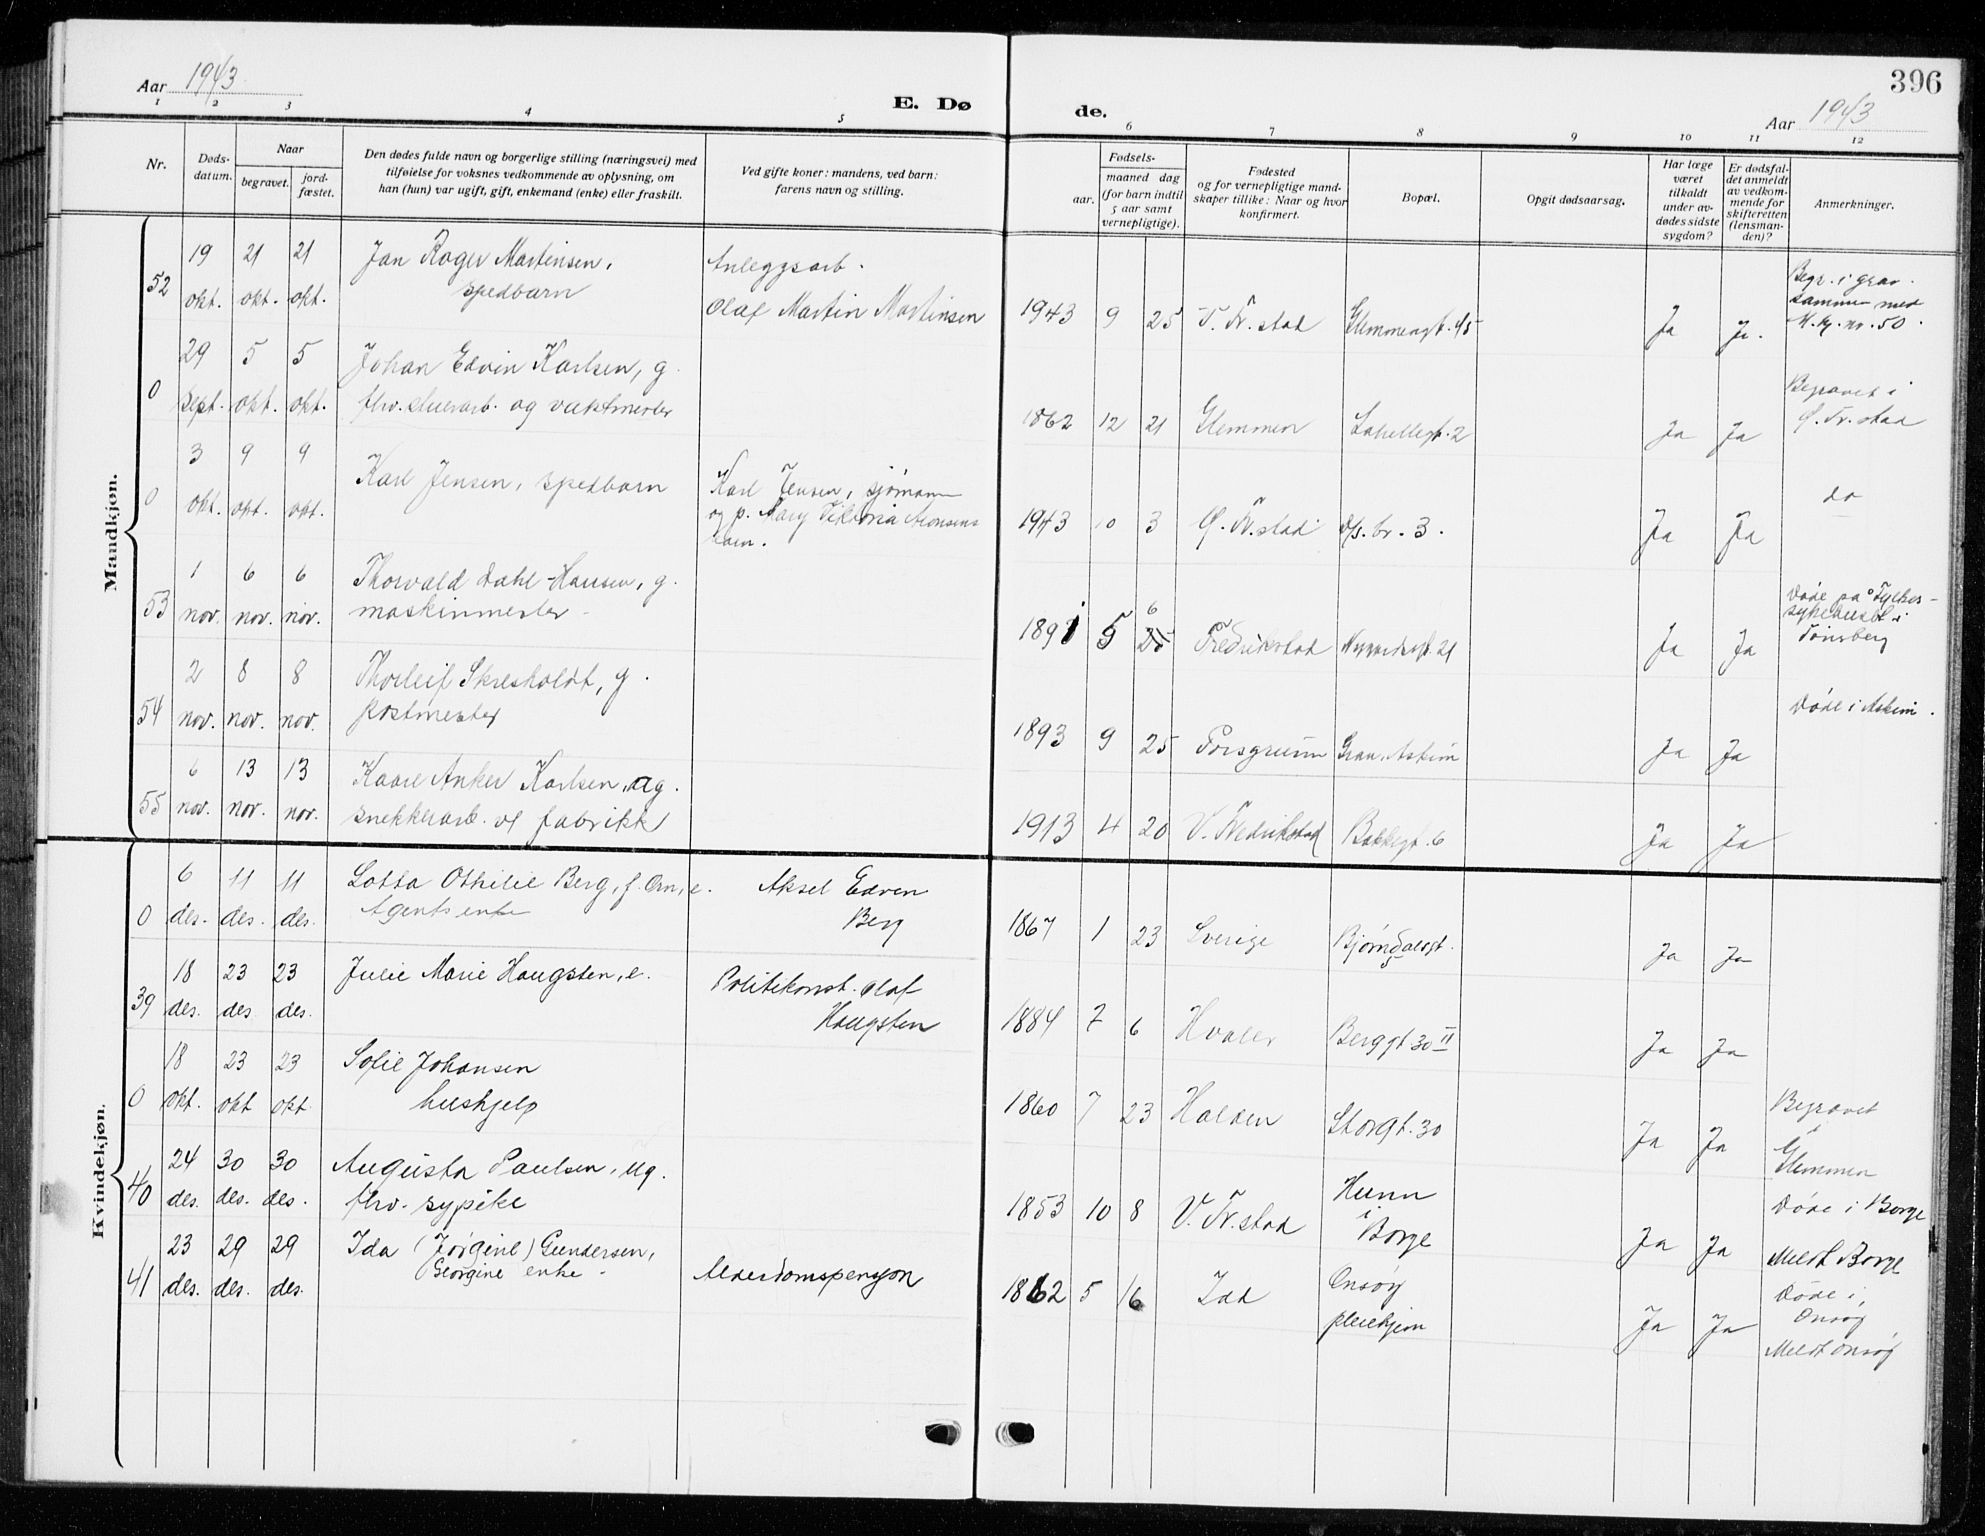 396
Aar 1943
E. Dø
de.
Aar 1943
1 2 3 4 5 6 7 8 9 10 11 12
Nr.
Døds-
datum.
Naar
begravet.
jord-
fæstet.
Den dødes fulde navn og borgerlige stilling (næringsvei) med
tilføielse for voksnes vedkommende av oplysning, om
han (hun) var ugift, gift, enkemand (enke) eller fraskilt.
Ved gifte koner: mandens, ved barn:
farens navn og stilling.
Fødsels-
aar.
maaned dag
(for barn indtil
5 aar samt
vernepligtige).
Fødested
og for vernepligtige mand-
skaper tillike: Naar og hvor
konfirmert.
Bopæl.
Opgit dødsaarsag.
Har læge
været
tilkaldt
under av-
dødes sidste
sygdom?
Er dødsfal-
det anmeldt
av vedkom-
mende for
skifteretten
(lensman-
den)?
Anmerkninger.
Mandkjøn.
52 19 okt. 21 okt. 21 okt.
Jan Roger Martinsen,
spedbarn
Anleggsarb.
Olaf Martin Martinsen
1943 9 25 V. Fr.stad Glemmengt. 45 Ja Ja.
Begr. i grav
sammen med
M.kj. nr. 50.
0 29 sept. 5 okt. 5 okt.
Johan Edvin Karlsen, g.
fhv. stuerarb. og vaktmester
1862 12 21 Glemmen Lahellegt. 2 Ja Ja
Begravet i
Ø. Fr.stad
0 3 okt. 9 okt. 9 okt.
Karl Jensen, spedbarn
Karl Jensen, sjømann
og p. Mary Viktoria Aronsens
barn.
1943 10 3 Ø. Fr.stad 3. Ja Ja
do
53 1 nov. 6 nov. 6 nov.
Thorvald Dahl-Hansen, g.
maskinmester
1891 5 6 Fredrikstad 21 Ja Ja
Døde på
sykehuset i
Tønsberg
54 2 nov. 8 nov. 8 nov.
Thorleif Skresholdt, g.
postmester
1893 9 25 Porsgrunn Grav, Askim Ja Ja
Døde i Askim.
55 6 nov. 13 nov. 13 nov.
Kaare Anker Karlsen, ug.
snekkerarb. v/ fabrikk
1913 4 20 V. Fredrikstad Bakkegt. 6 Ja Ja
Kvindekjøn.
0 6 des. 11 des. 11 des.
Lotta Othilie Berg, f. Orn, e.
Agents enke
Aksel Edven
Berg
1867 1 23 Sverige Bjørndalsgt.
5 Ja Ja
39 18 des. 23 des 23 des.
Julie Marie Haugsten, e.
Politikonst. Olaf
Haugsten
1884 7 6 Hvaler Berggt 30 II Ja Ja
0 18 okt. 23 okt 23 okt
Sofie Johansen
hushjelp
1860 7 23 Halden Storgt. 30 Ja Ja
Begravet
i
Glemmen
40 24 des. 30 des. 30 des.
Augusta Paulsen, ug.
fhv. sypike
1853 10 8 V. Fr.stad Hunn
i
Borge Ja Ja
Døde i Borge
Meldt Borge
41 23 des. 29 des. 29 des.
Ida (Jørgine) Gundersen,
Georgine enke
Alderdomspensjon
1862 5 16 Idd Onsøy
pleiehjem Ja Ja
Døde i
Onsøy
Meldt Onsøy